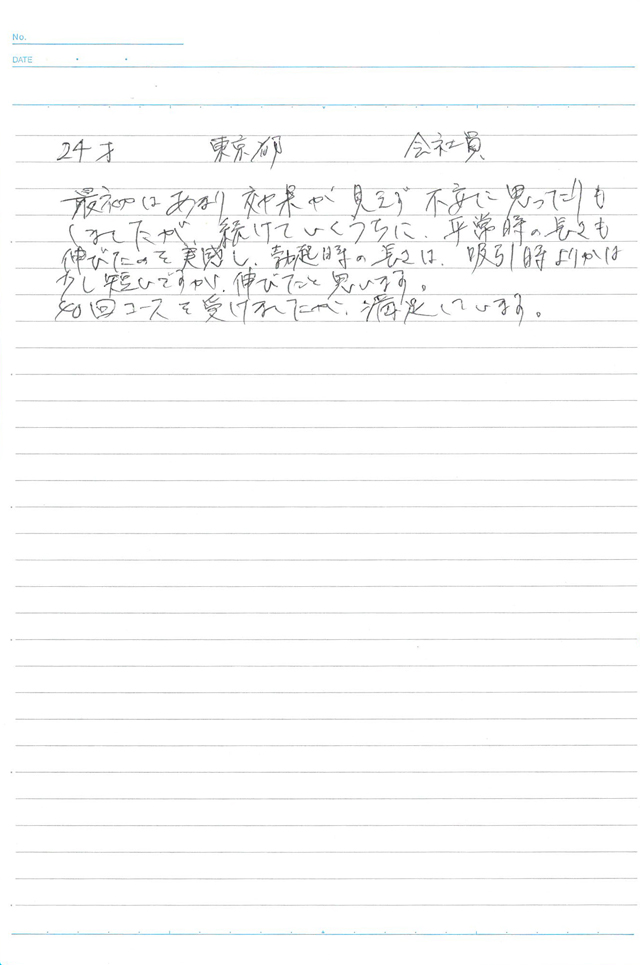 No.
DATE
24才 東京都 会社員
最初はあまり効果が見えず不安に思ったりも
しましたが、続けていくうちに、平常時の長さも
伸びたのを実感し、勃起時の長さは、吸引時よりかは
少し短いですが、伸びたと思います。
回コースを受けましたが、満足しています。